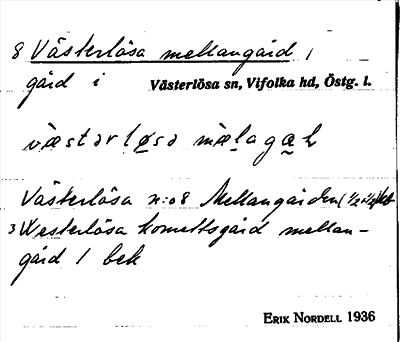 8 Västerlösa mellangård /
gård i Västerlösa sn, Vifolka hd, Östg. l.
væstərløsə mælagɑh
Västerlösa n:o 8 Mellangården (1/2+1/2)
3 Westerlösa komettsgård mellan-
gård / bek
ERIK NORDELL 1936